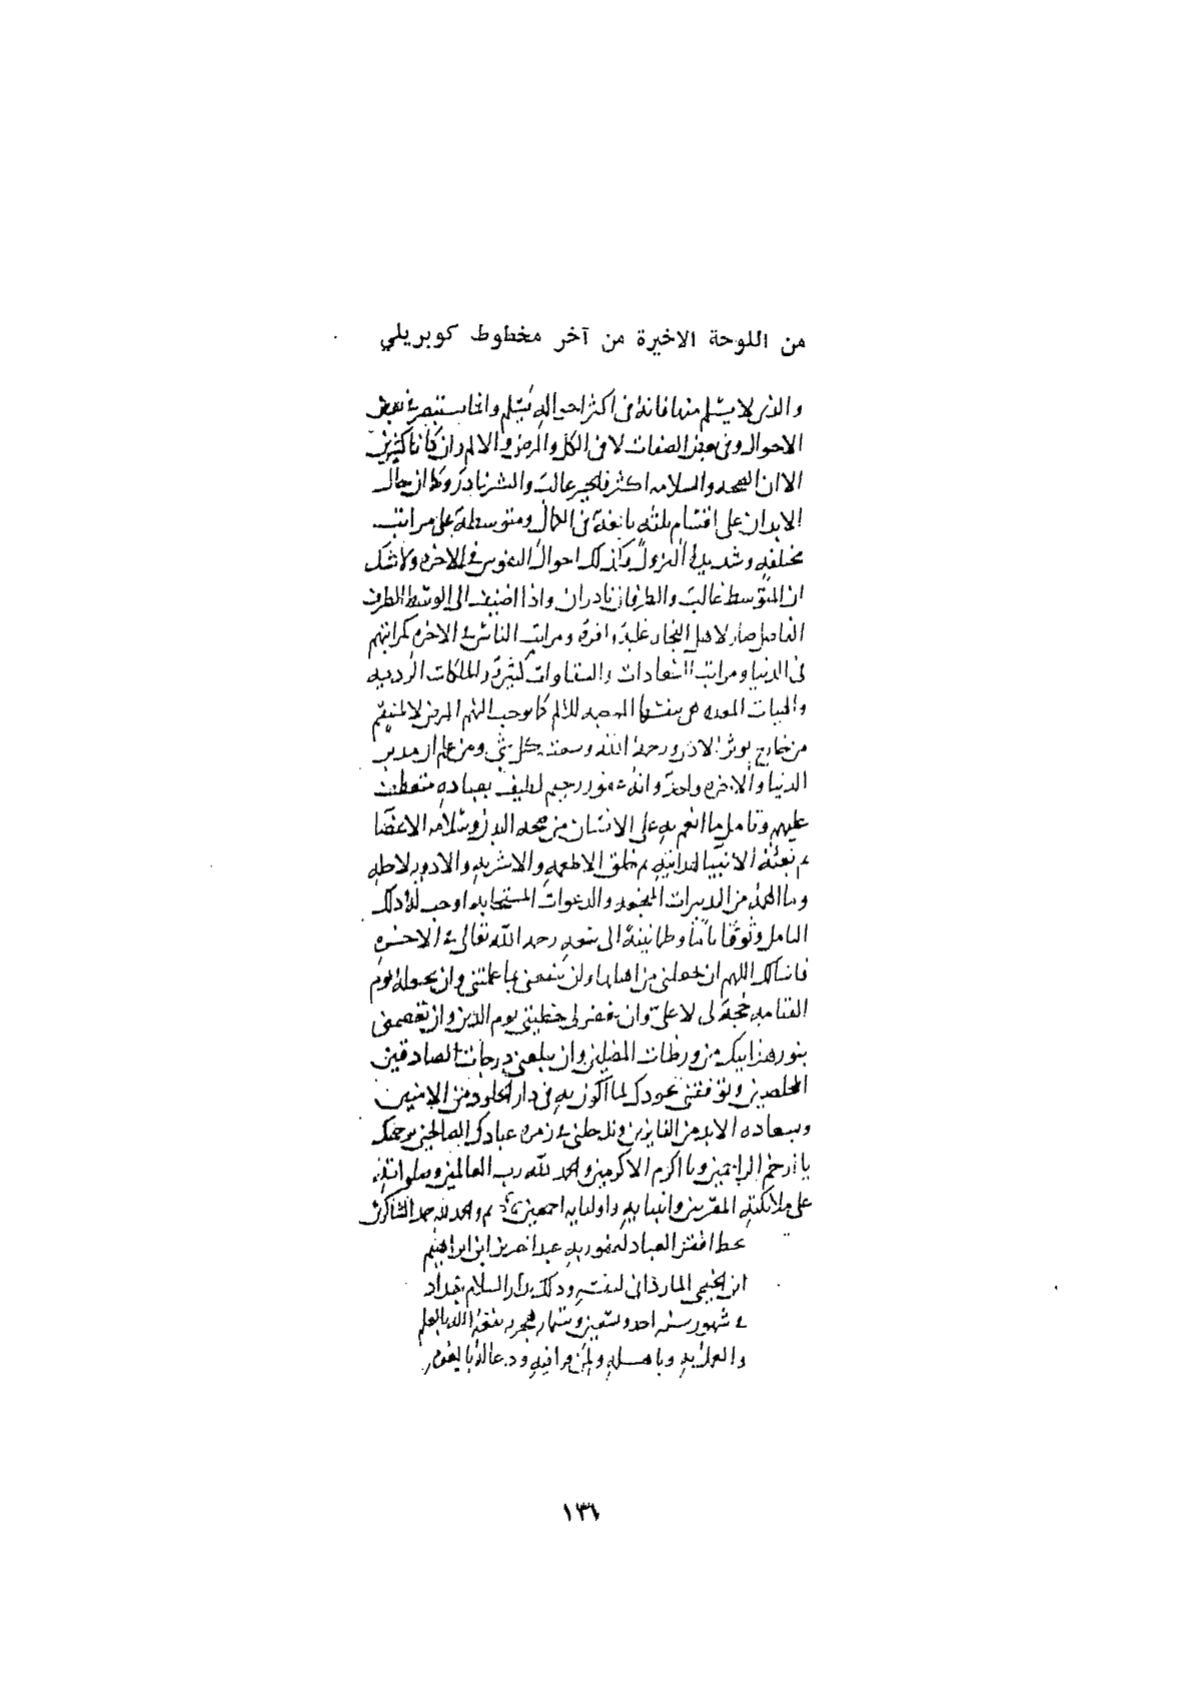 من اللوحة الاخيرة من آخر مخطوط كوبريلي
والذى لا يسلم منها فانه فى اكثر احواله يسلم وانما يستضر فى بعض
الاحوال وفى بعض الصفات لا فى الكل والمرض والالم وان كانا كثيرين
الا ان الصحه والسلامه اكثر فالخير غالب والشر نادر وكما ان حال
الابدان على اقسام ثلثه بالغة فى الكمال ومتوسطة على مراتب
مختلفه وشديدة النزول وكذلك احوال النفوس فى الاخره ولا شك
ان المتوسط غالب والطرفان نادران واذا اضيف الى الوسط الطرف
الفاضل صار لاهل النجاة غلبة وافرة ومراتب الناس فى الاخره كمراتبهم
فى الدنيا ومراتب السعادات والشقاوات كثيرة والملكات الرديه
والهيات المعده هى بنفسها الموجبه للالم كما يوجب النهم المرض لا لمنتقم
من خارج يوثر الاذى ورحمة الله وسعت كل شى ومن علم ان مدبر
الدنيا والاخره واحد وانه غفور رحيم لطيف بعباده متعطف
عليهم وتامل ما انعم به على الانسان من صحه البدن وسلامه الاعضا
ثم بعثة الانبيا لهدايته ثم خلق الاطعمه والاشربه والادويه لاجله
وما الهمه من التدبيرات المنجيه والدعوات المستجابه اوجب له ذلك
التامل وثوقا تاما وطمانينة الى سعه رحمه الله تعالى فى الاخره
فاسالك اللهم ان تجعلنى من اهلها وان تنفعنى بما علمتنى وان تجعله يوم
القيامه حجة لى لا على وان تغفر لى خطيئتى يوم الدين وان تعصمنى
بنور هدايتك من ورطات المضلين وان تبلغنى درجات الصادقين
المخلصين وتوفقنى بجودك لما اكون به فى دار الخلود من الامنين
وبسعاده الابد من الفايزين وتدخلنى فى زمره عبادك الصالحين برحمتك
يا ارحم الراحمين ويا اكرم الاكرمين والحمد لله رب العالمين وصلواته
على ملائكته المقربين وانبيايه واوليايه اجمعين تم والحمد لله حمد الشاكرين
بخط افقر العباد لعفو ربه عبد العزيز ابن ابراهيم
ابن الخيمى الماردانى لنفسه وذلك بدار السلام بغداد
فى شهور سنه احد وتسعين وستمايه هجريه نفعه الله بالعلم
والعمل به وباهله ولمن قرا فيه ودعا له بالعفو
١٣٦